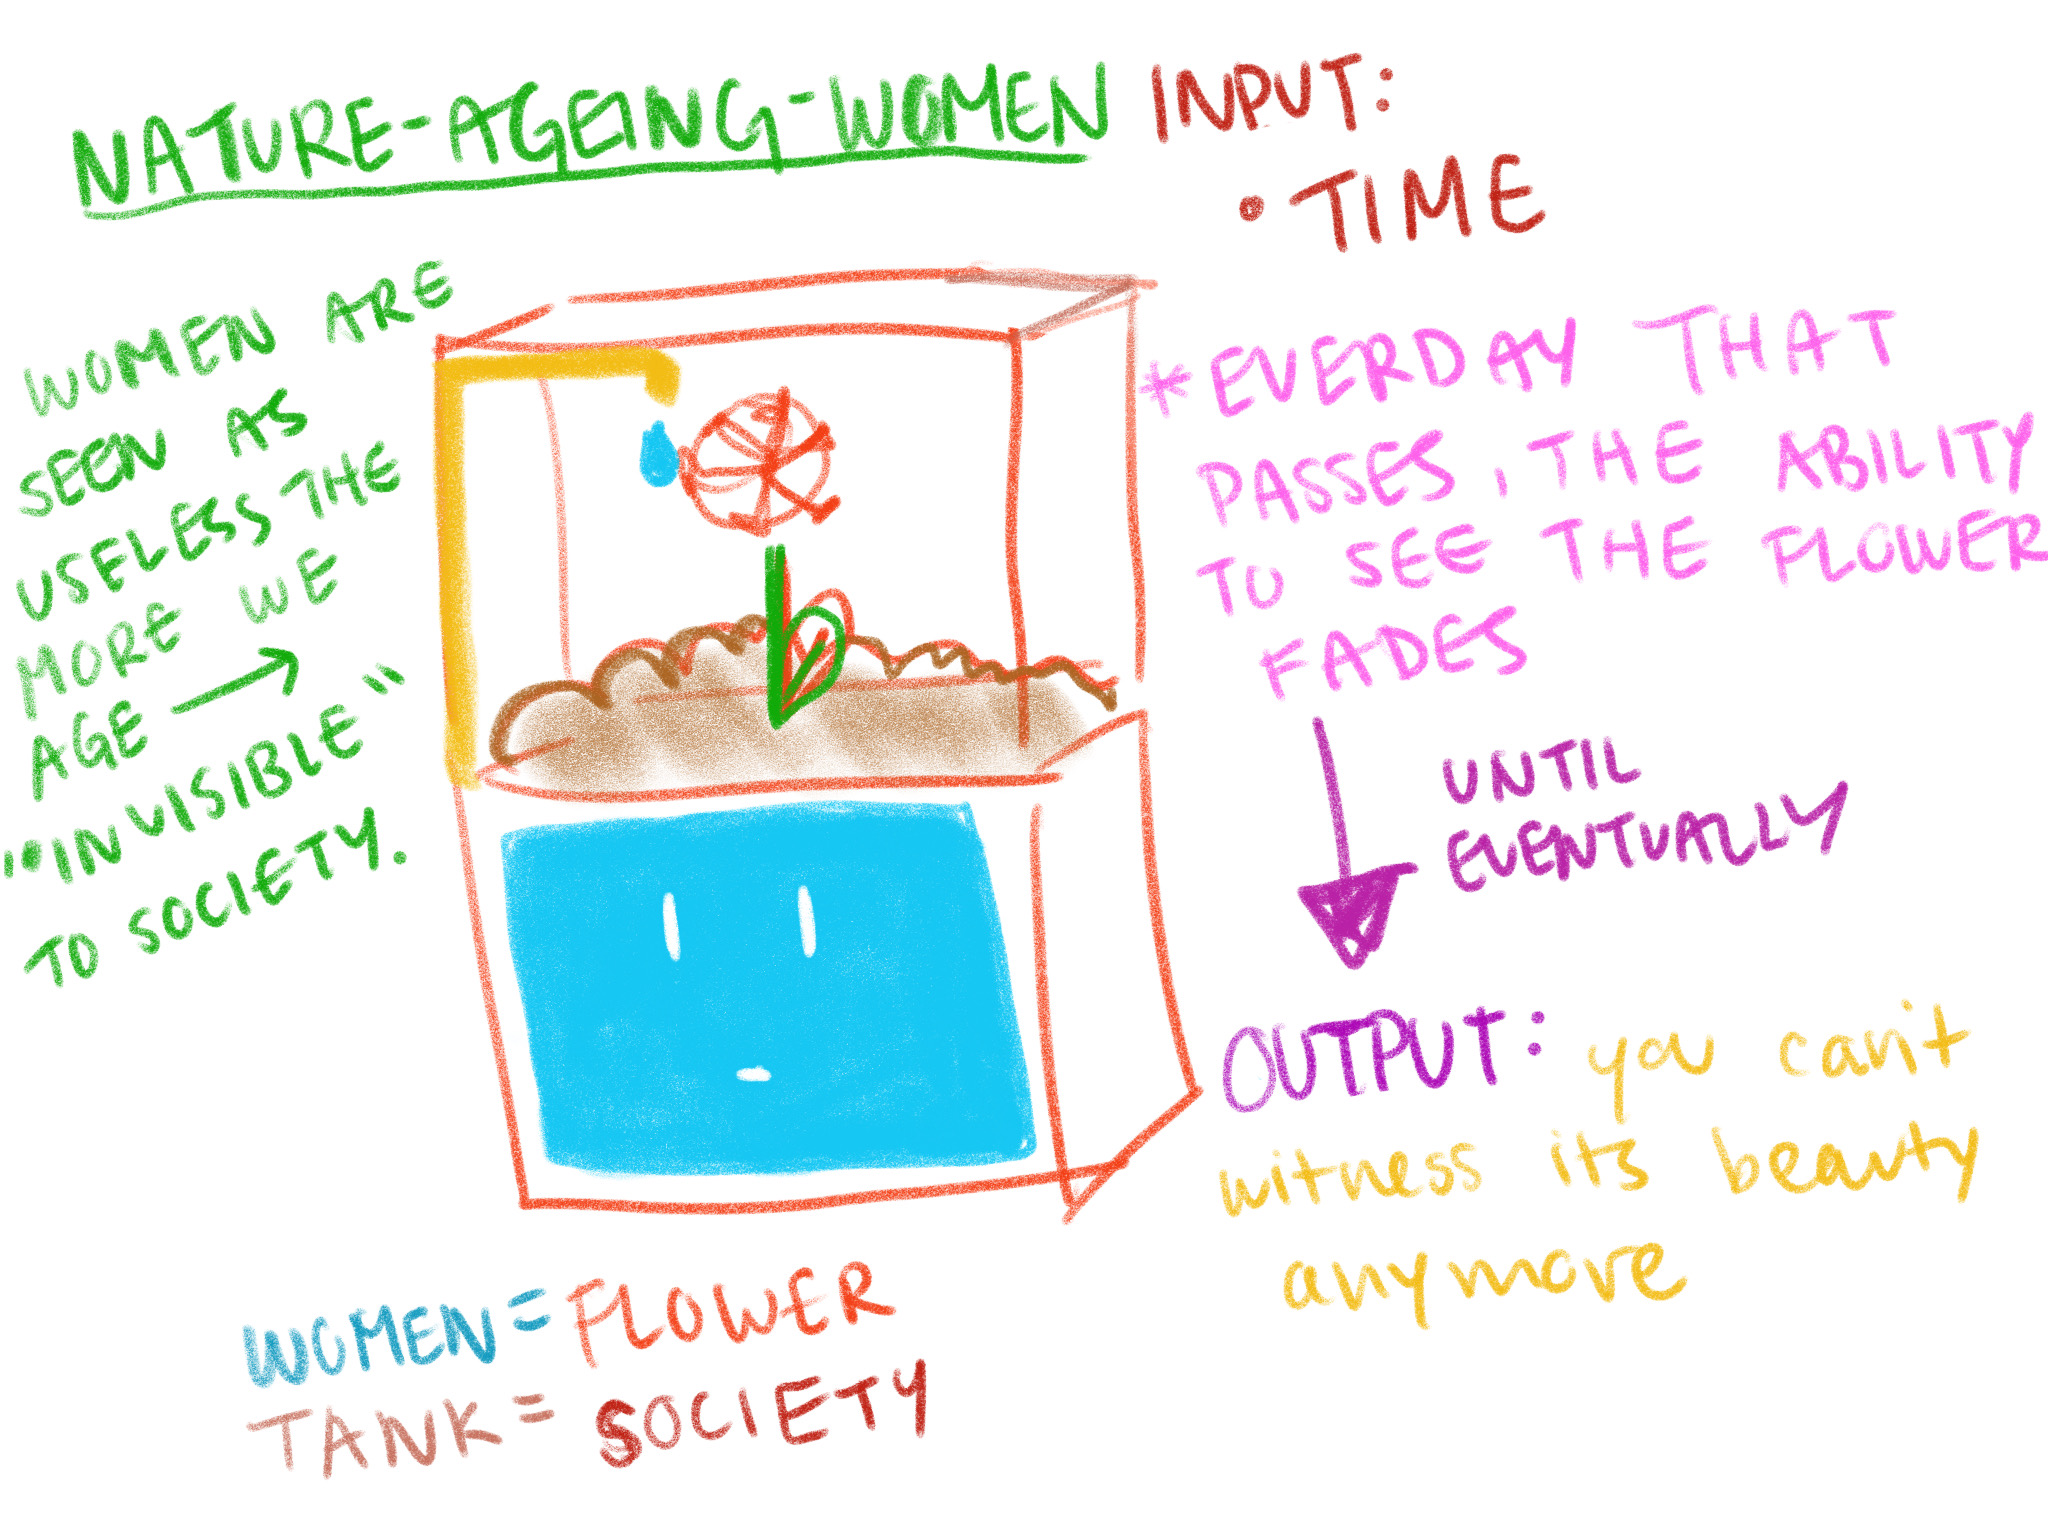 NATURE-AGEING-WOMEN
WOMEN ARE
SEEN AS
USELESS THE
MORE WE
AGE →
"INVISIBLE"
TO SOCIETY.
INPUT:
• TIME
*EVERDAY THAT
PASSES, THE ABILITY
TO SEE THE FLOWER
FADES
UNTIL
EVENTUALLY
OUTPUT: you can't
witness its beauty
anymore
WOMEN = FLOWER
TANK = SOCIETY